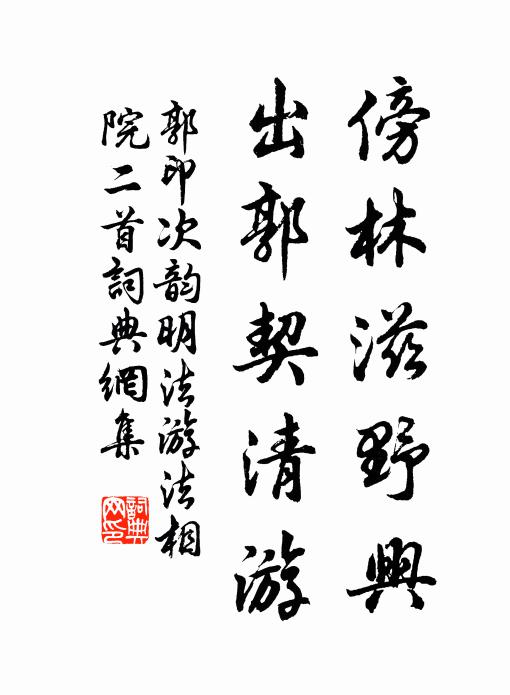 傍林滋野興
出郭契清游
郭印次韵明法游法相
院二首詞典網集
詞典
网印